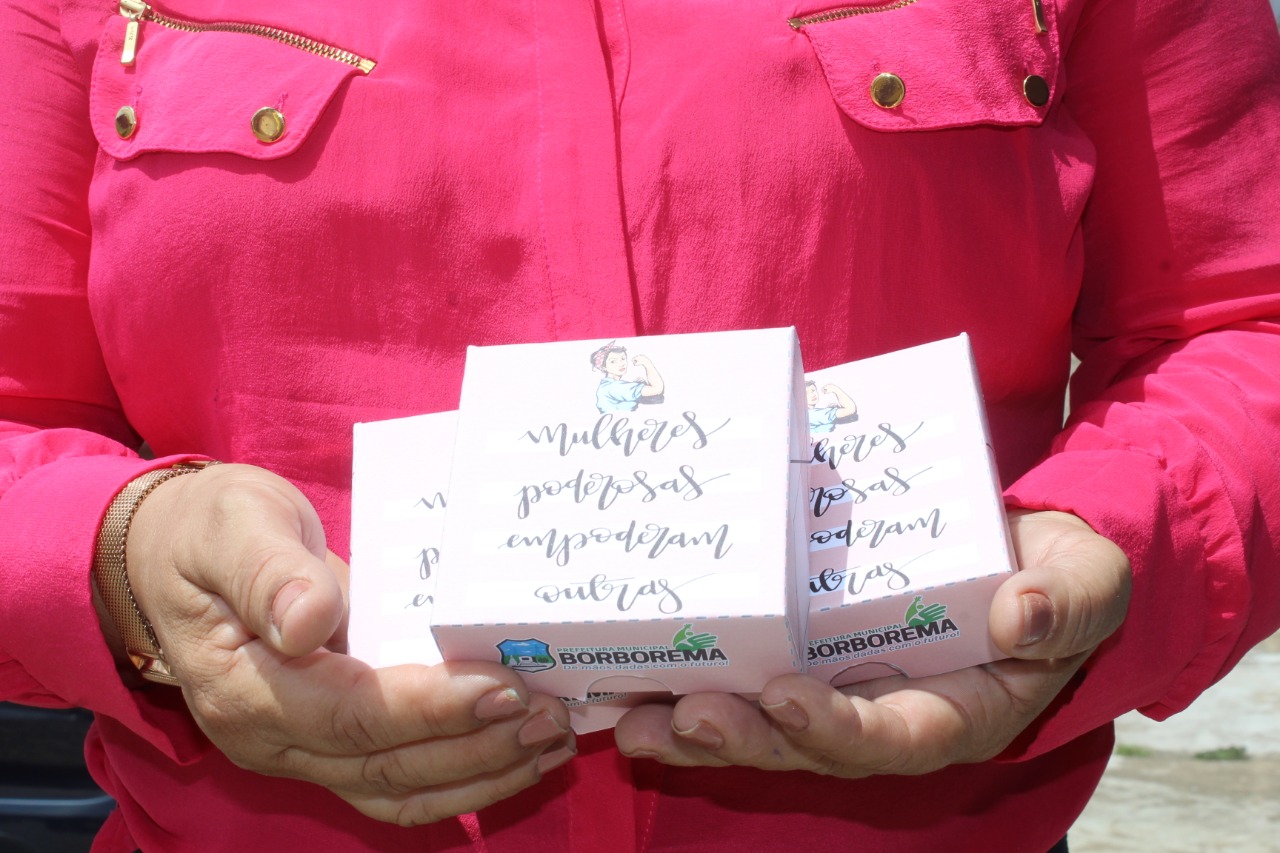 mulheres
poderosas
empoderam
outras
PREFEITURA MUNICIPAL
BORBOREMA
De mãos dadas com o futuro!
lheres
rosas
oderam
ubras
PREFEITURA MUNICIPAL
BORBOREMA
De mãos dadas com o futuro!
m
p
em